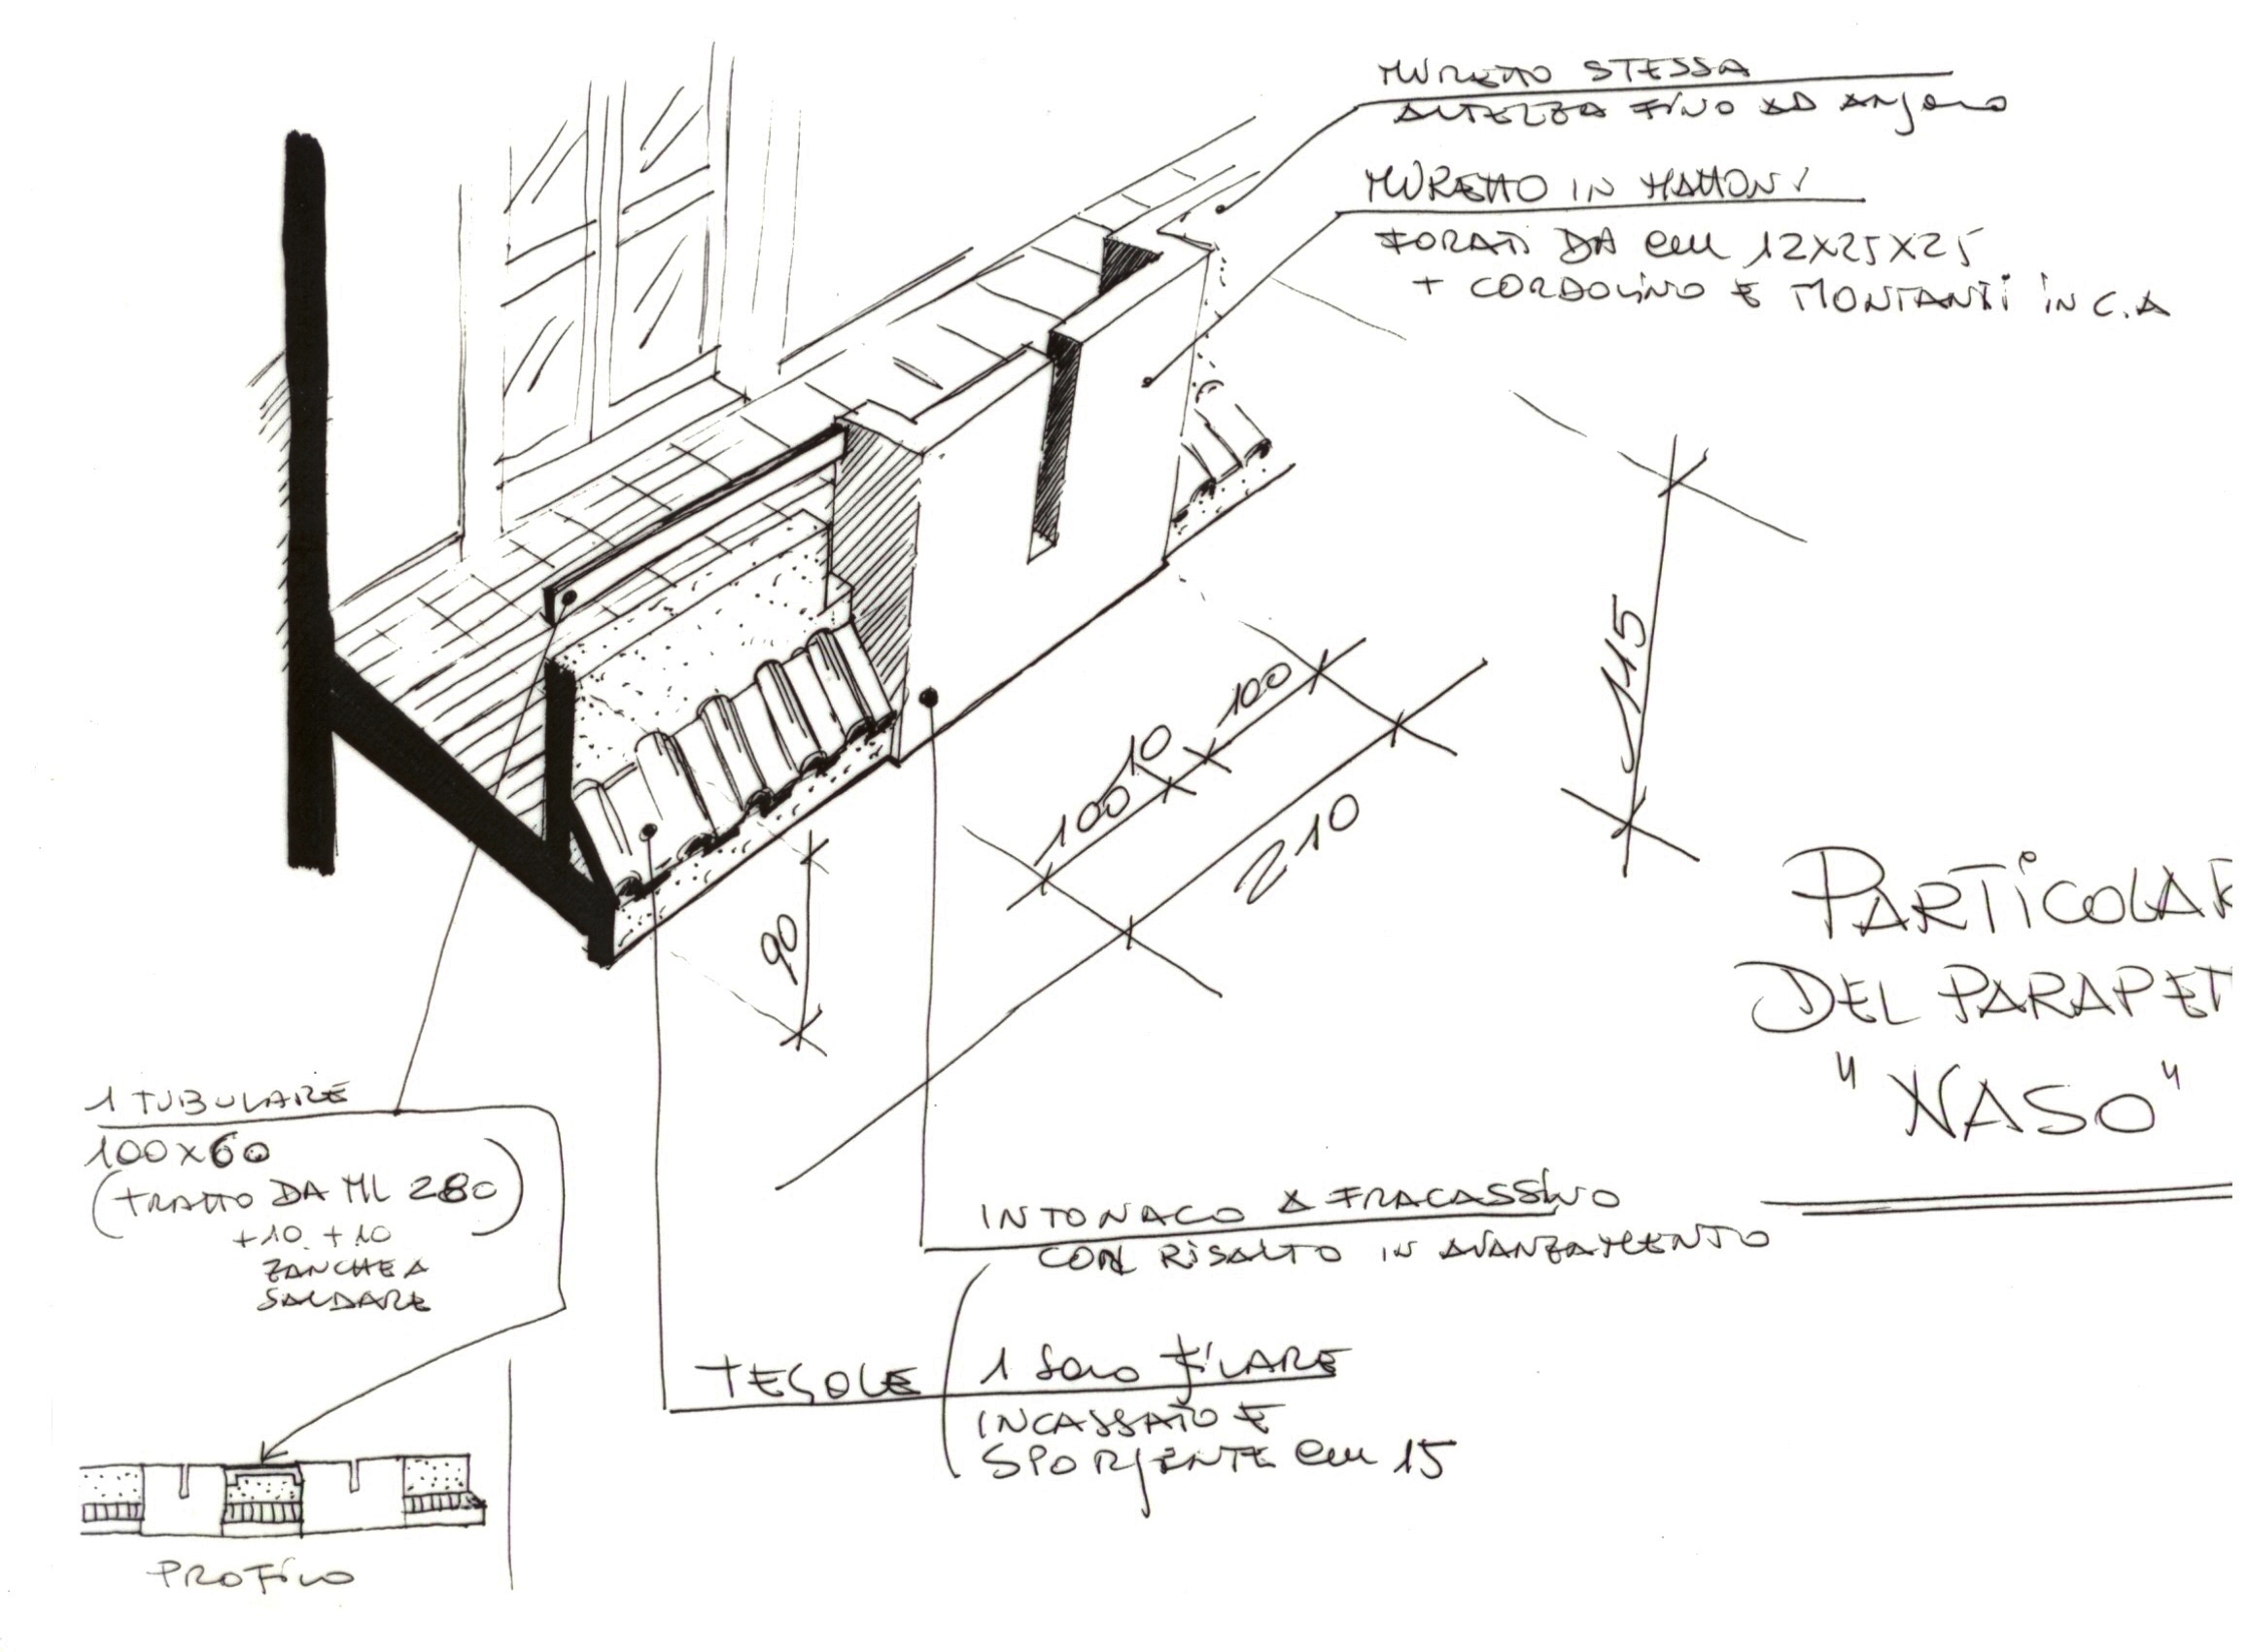 MURETTO STESSA
ALTEZZA FINO AD ANGOLO
MURETTO IN MATTONI
FORATI DA cm 12X25X25
+ CORDOLINO E MONTANTI IN C.A
115
100
10
100
210
90
PARTICOLAR
DEL PARAPET
"NASO"
1 TUBULARE
100x60
(TRATTO DA ML 280)
+10 +10
ZANCHE A
SALDARE
INTONACO A FRACASSINO
CON RISALTO IN AVANZAMENTO
TEGOLE
1 SOLO FILARE
INCASSATO E
SPORGENTE cm 15
PROFILO